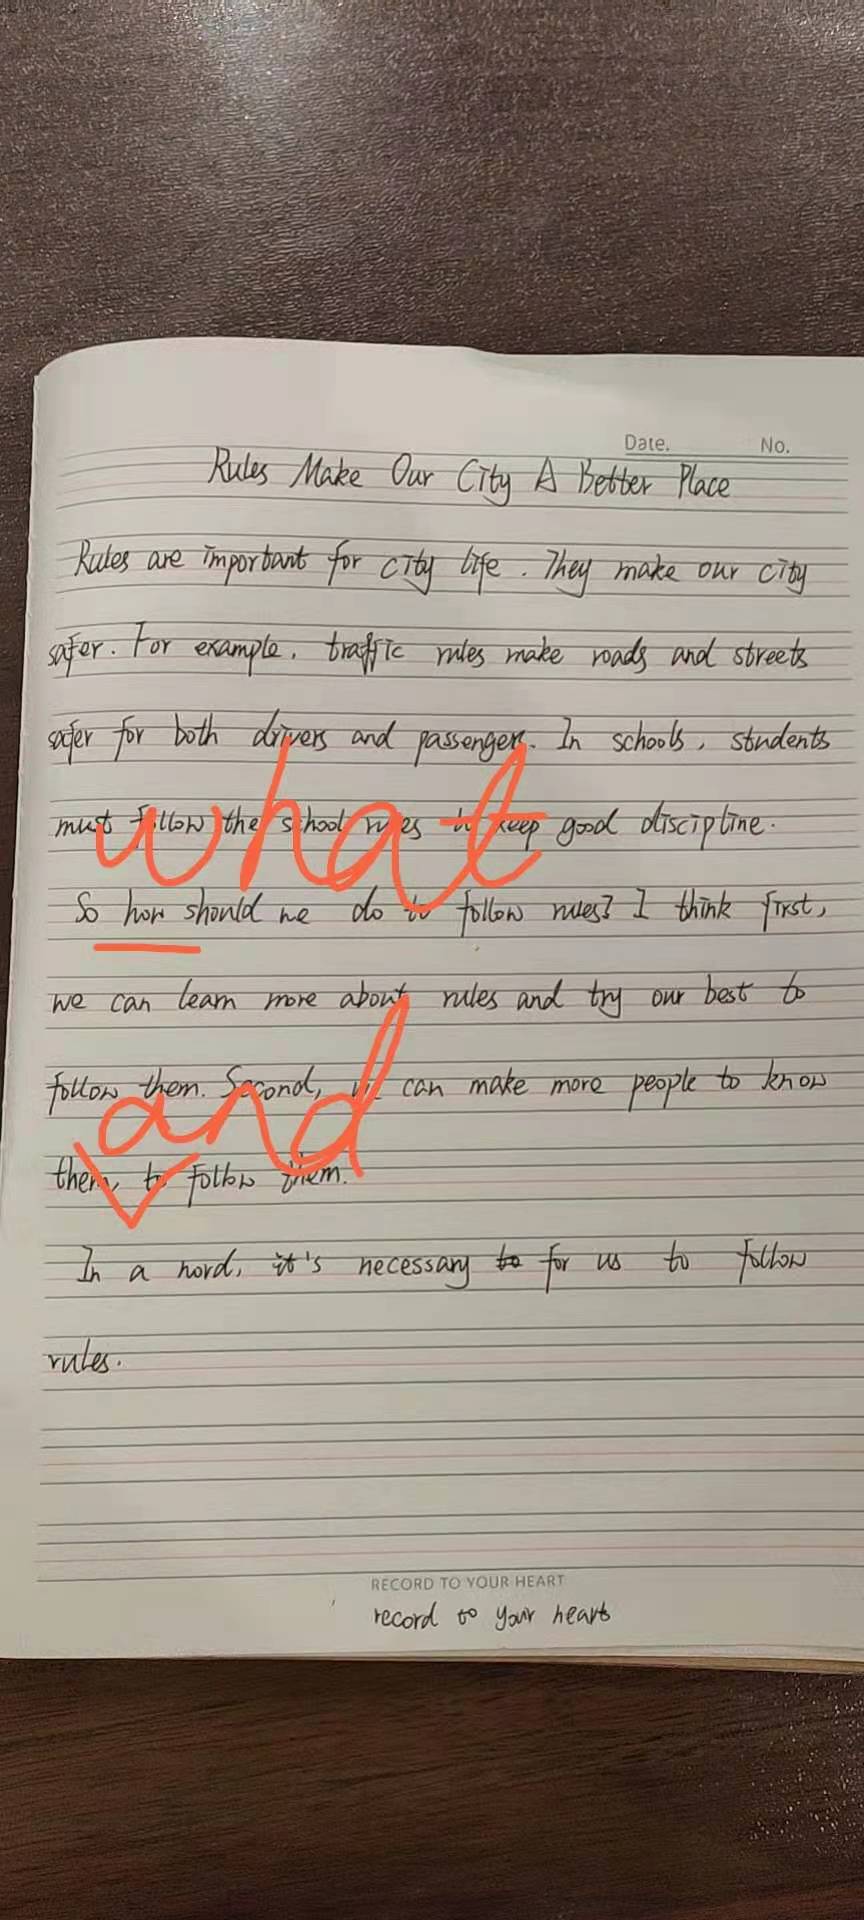 Date. No.
Rules Make Our City A Better Place
Rules are important for city life. They make our city
safer. For example, traffic rules make roads and streets
safer for both drivers and passengers. In schools, students
what
must follow the school rules to keep good discipline.
So how should we do to follow rules? I think first,
we can learn more about rules and try our best to
follow them. Second, we can make more people to know
and
them, to follow them.
In a word, it's necessary to for us to follow
rules.
RECORD TO YOUR HEART
record to your heart